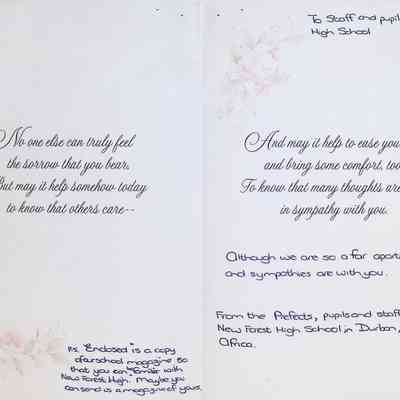 No one else can truly feel
the sorrow that you bear,
But may it help somehow today
to know that others care--
P.S. "Enclosed" is a copy
of our school magazine so
that you can "familiar" with
New Forest High." Maybe you
can send us a magazine of yours.
To Staff and pupil
High School
And may it help to ease you
and bring some comfort, too
To know that many thoughts are
in sympathy with you.
Although we are so a far apart
and sympathies are with you.
From the Prefects, pupils and staff
New Forest High School in Durban,
Africa.